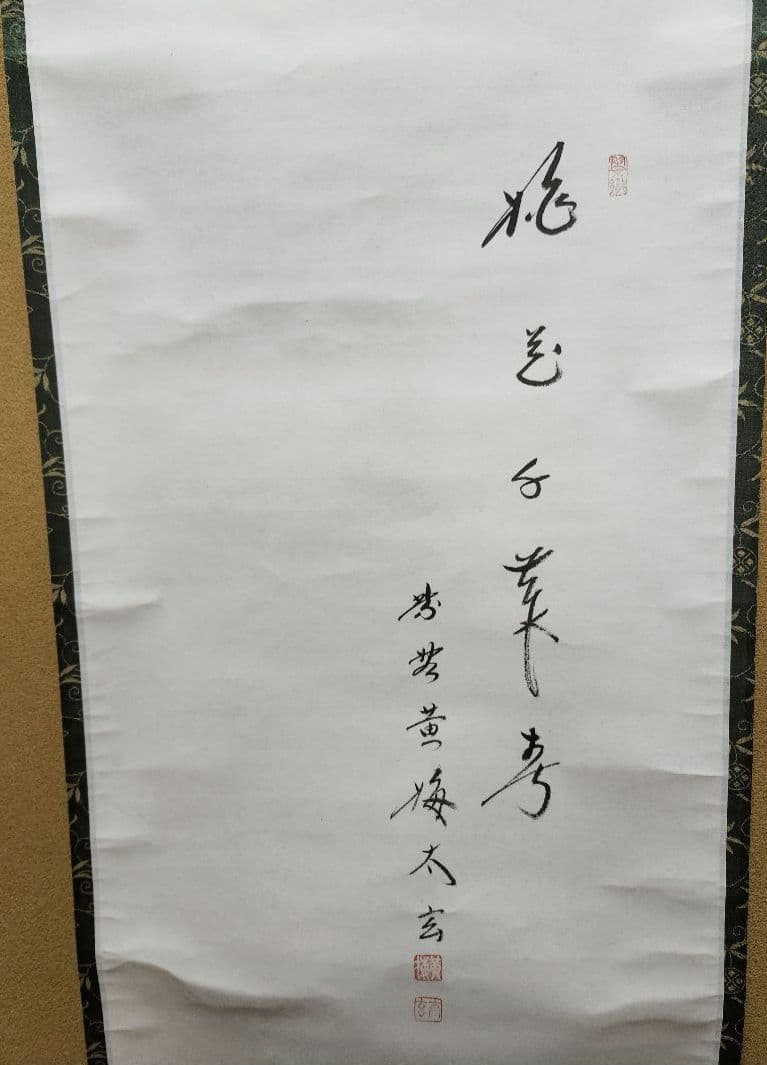 桃花千葉
紫野黄梅太玄